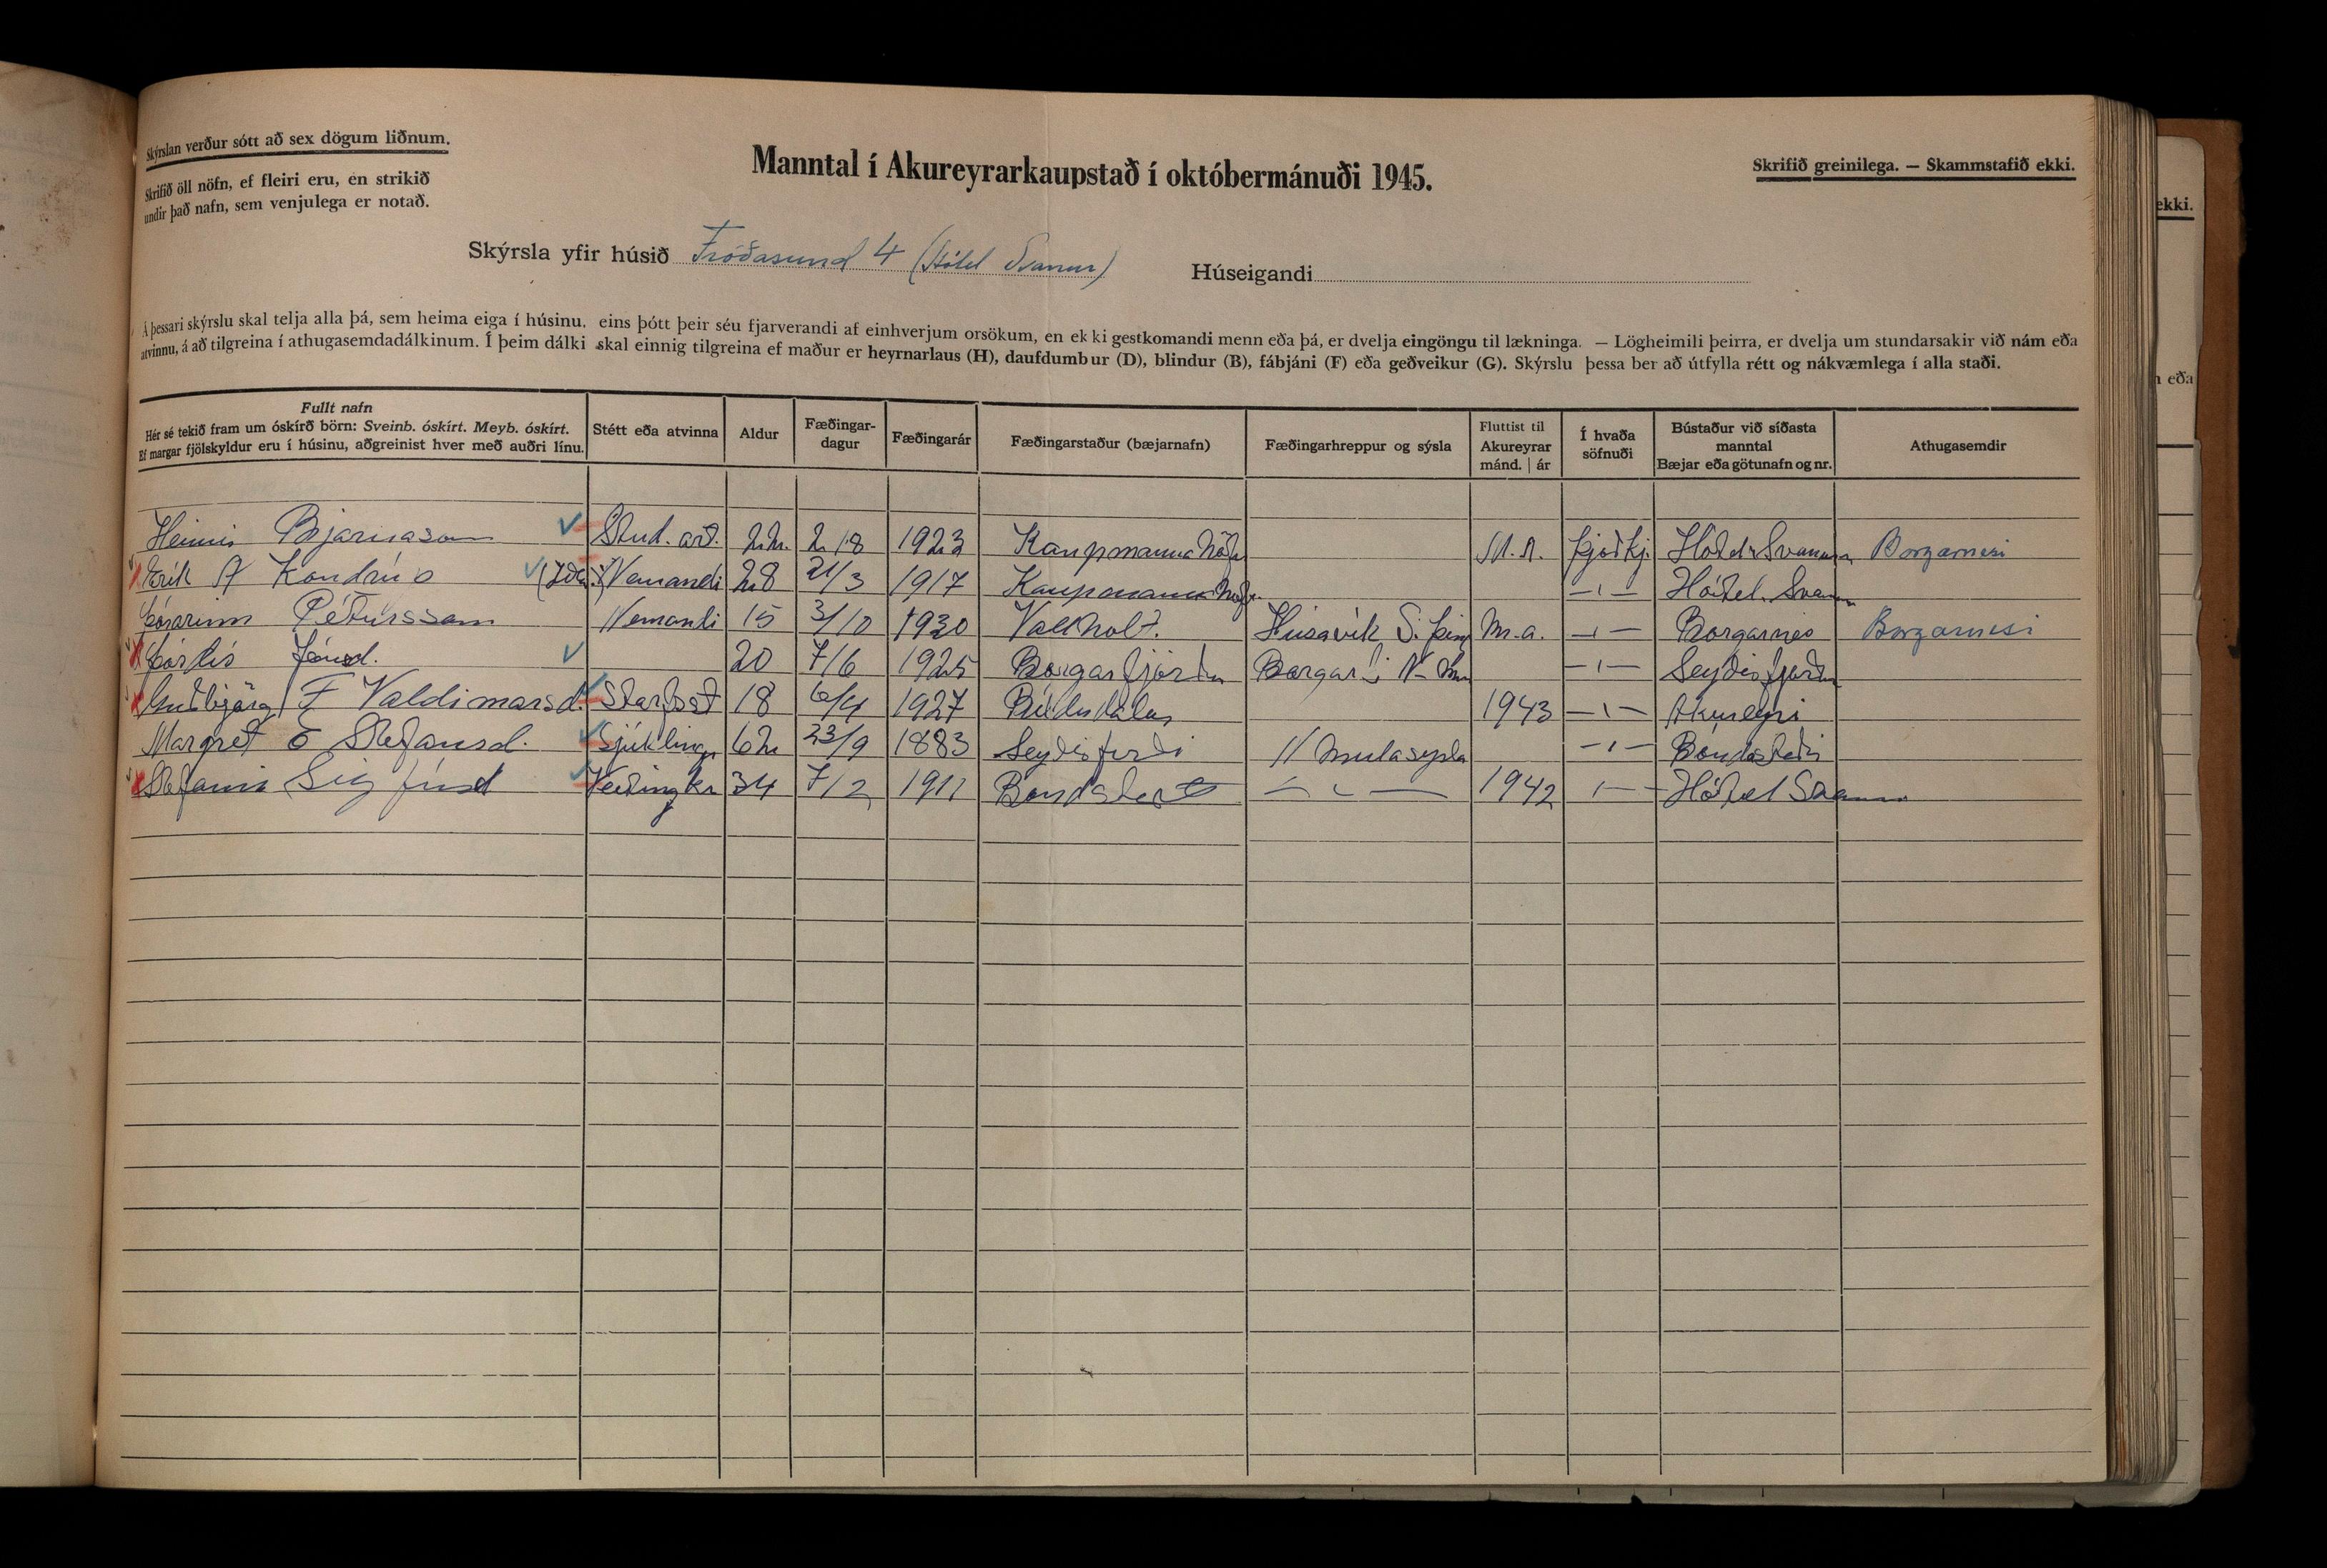 Skýrslan verður sótt að sex dögum liðnum.
Skrifið öll nöfn, ef fleiri eru, en strikið
undir það nafn, sem venjulega er notað.
Manntal í Akureyrarkaupstað í októbermánuði 1945.
Skrifið greinilega. — Skammstafið ekki.
ekki.
Skýrsla yfir húsið Fróðasund 4 (Hótel Svanur) Húseigandi
Á þessari skýrslu skal telja alla þá, sem heima eiga í húsinu, eins þótt þeir séu fjarverandi af einhverjum orsökum, en ekki gestkomandi menn eða þá, er dvelja eingöngu til lækninga. — Lögheimili þeirra, er dvelja um stundarsakir við nám eða
atvinnu, á að tilgreina í athugasemdadálkinum. Í þeim dálki skal einnig tilgreina ef maður er heyrnarlaus (H), daufdumbur (D), blindur (B), fábjáni (F) eða geðveikur (G). Skýrslu þessa ber að útfylla rétt og nákvæmlega í alla staði.
eða
Fullt nafn
Hér sé tekið fram um óskírð börn: Sveinb. óskírt. Meyb. óskírt.
Ef margar fjölskyldur eru í húsinu, aðgreinist hver með auðri línu.
Stétt eða atvinna
Aldur
Fæðingar-
dagur
Fæðingarár
Fæðingarstaður (bæjarnafn)
Fæðingarhreppur og sýsla
Fluttist til
Akureyrar
mánd. | ár
Í hvaða
söfnuði
Bústaður við síðasta
manntal
Bæjar eða götunafn og nr.
Athugasemdir
Heimir Bjarnason Stud. art. 22. 2/8 1923 Kaupmannahöfn M.A. þjóðkj. Hótel Svanur Borgarnesi
Erík A Kondrúp Nemandi 28 21/3 1917 Kaupmannahöfn —ı— Hótel Svanur
Þórarinn Pétursson Nemandi 15 3/10 1930 Vallholt. Húsavík S. Þing M.a. —ı— Borgarnes Borgarnesi
Þórdís Jónsd. 20 7/6 1925 Borgarfjörður Borgarf. N-Mu —ı— Seyðisfjörður
Guðbjörg F Valdimarsd. Starfsst 18 6/4 1927 Bíldudalur 1943 —ı— Akureyri
Margrét Ó Stefansd. Sjúklingur 62 23/9 1883 Seyðisfirði N Mulasysla —ı— Bóndastaðir
Stefania Sigfúsd Veitingk. 34 7/2 1911 Bóndast — ı — 1942 ı— Hótel Svanur